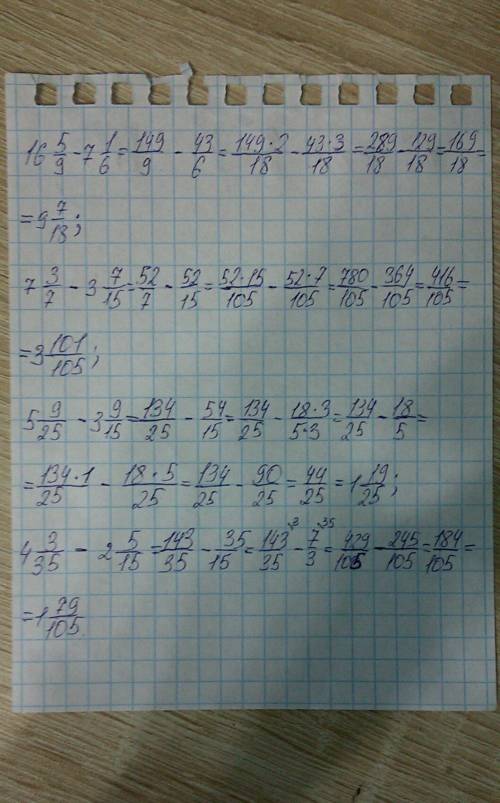 16 5/9 - 7 1/6 = 149/9 - 43/6 = 149·2/18 - 43·3/18 = 289/18 - 129/18 = 169/18 =
= 9 7/18;
7 3/7 - 3 7/15 = 52/7 - 52/15 = 52·15/105 - 52·7/105 = 780/105 - 364/105 = 416/105 =
= 3 101/105;
5 9/25 - 3 9/15 = 134/25 - 54/15 = 134/25 - 18·3/5·3 = 134/25 - 18/5 =
= 134·1/25 - 18·5/25 = 134/25 - 90/25 = 44/25 = 1 19/25;
4 3/35 - 2 5/15 = 143/35 - 35/15 = 143·3/35 - 7·35/3 = 429/105 - 245/105 = 184/105 =
= 1 79/105